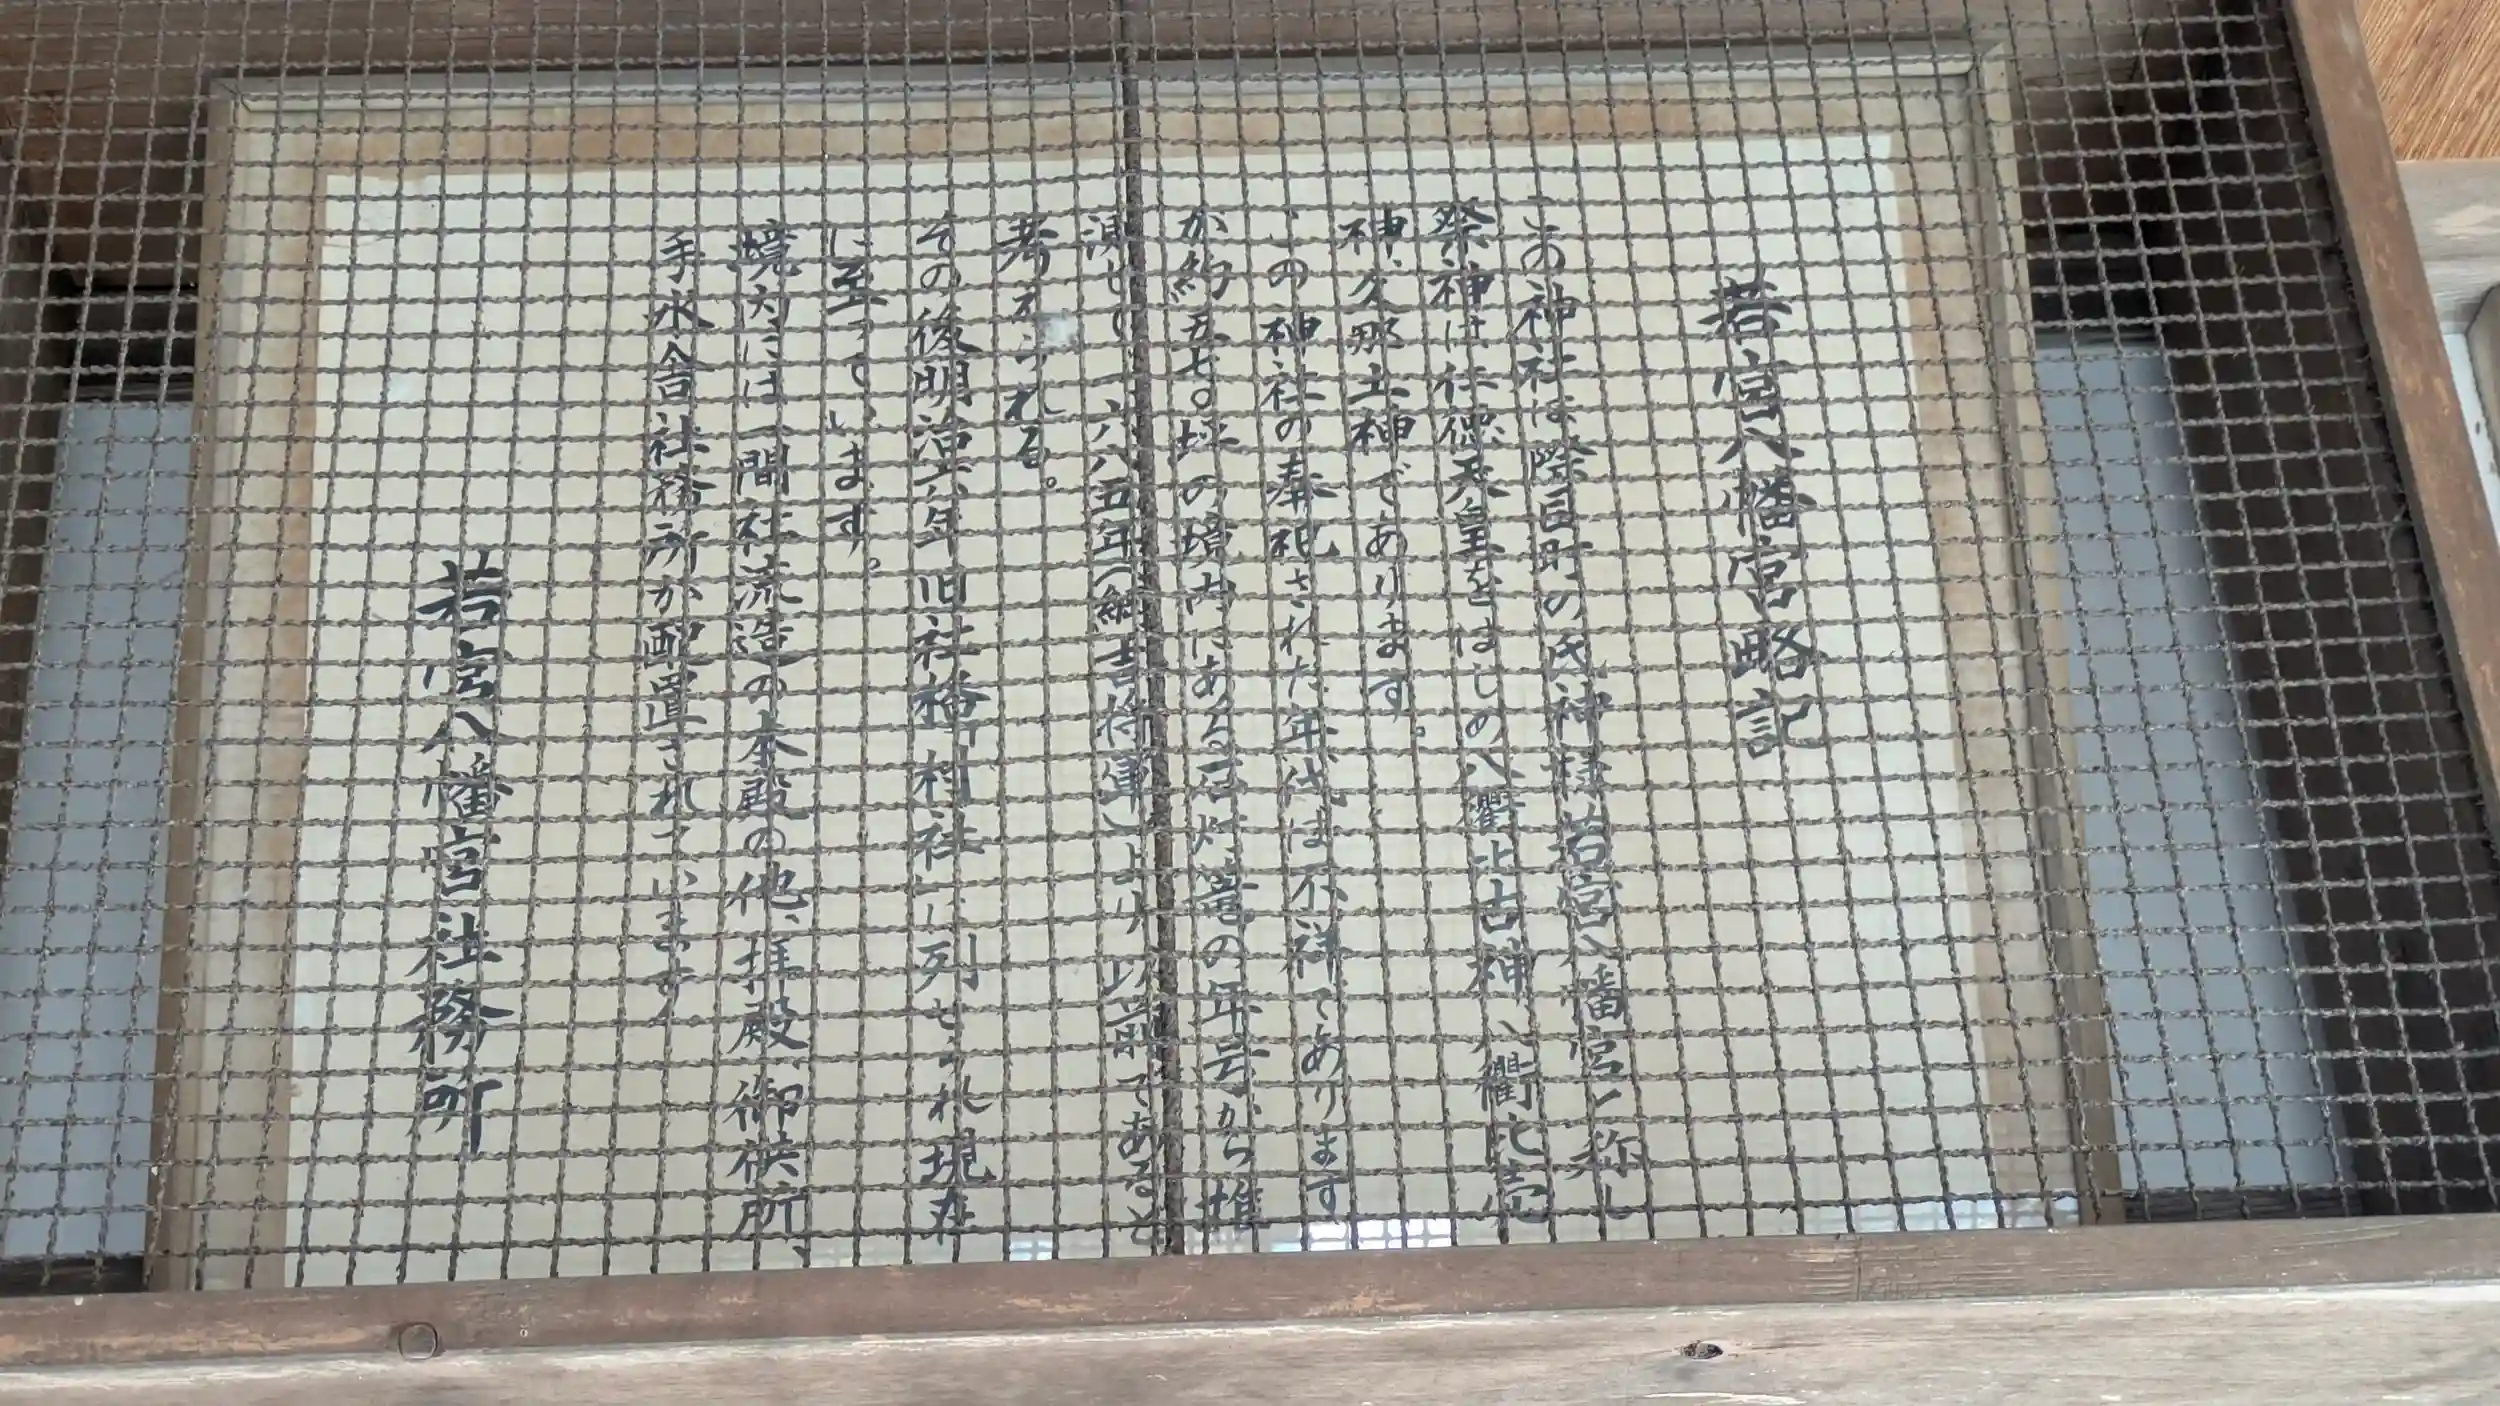 若宮八幡宮略記
この神社は際目町の氏神様若宮八幡宮と称し
祭神は仁徳天皇をはじめ八衢比古神、八衢比売
神、久那土神であります。
この神社の奉祀された年代は不祥であります
が約五七〇坪の境内にある石灯篭の年号から推
測せば一六八五年(綱吉将軍)より以前であると
考えられる。
その後明治六年旧社格村社に列せられ現在
に至っています。
境内には一間社流造の本殿の他、拝殿、御供所、
手水舎社務所が配置されています
若宮八幡宮社務所